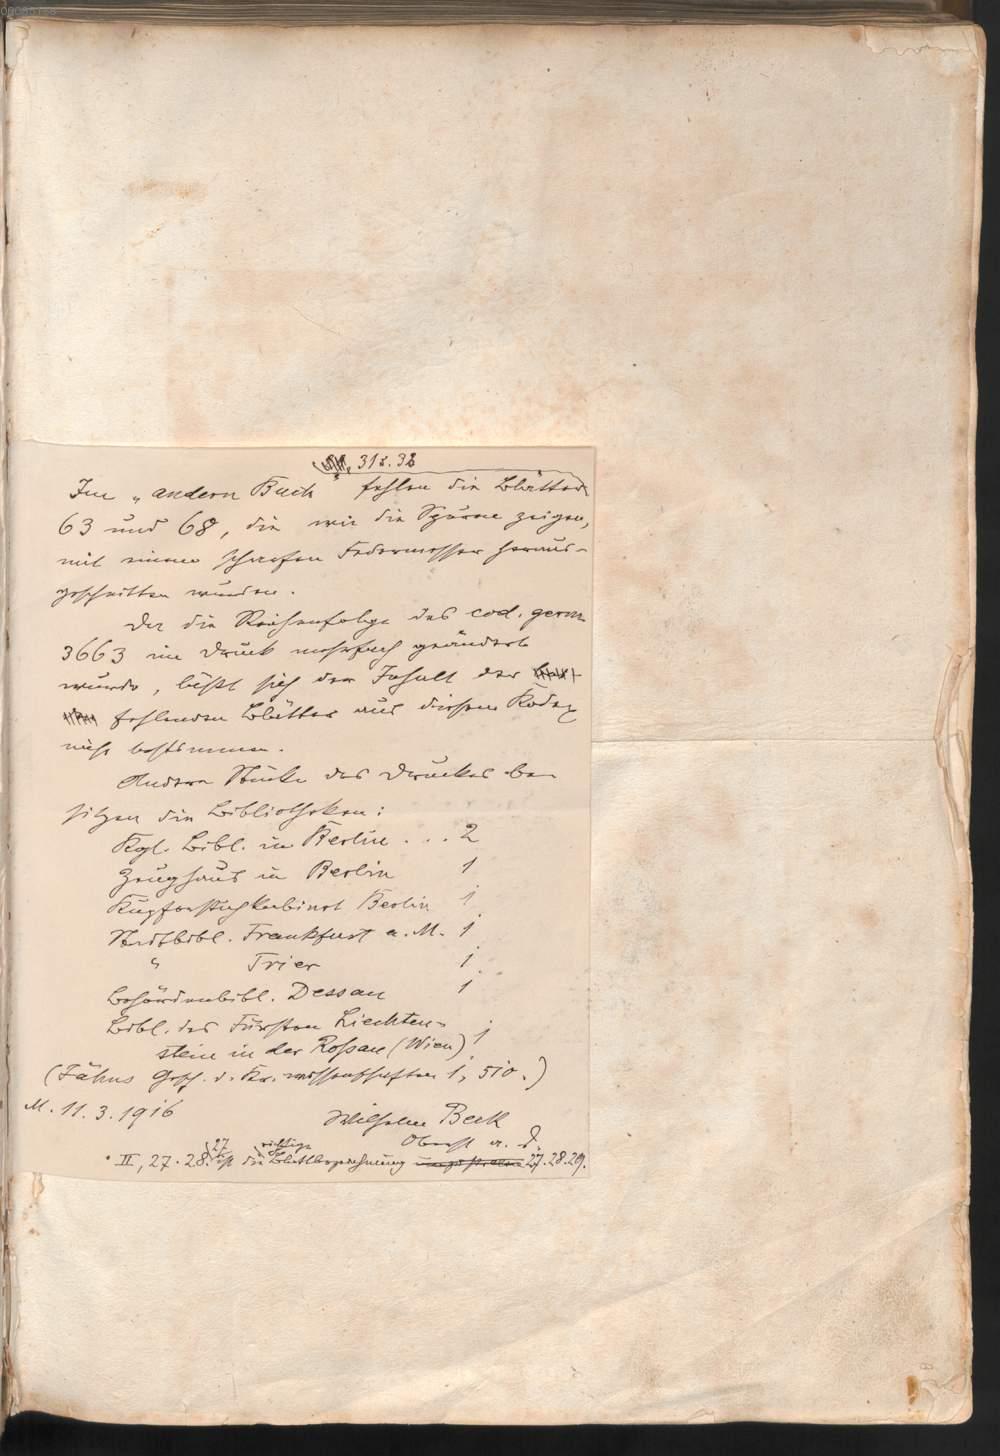 00085788
31 u. 32
Im „andern Buch" fehlen die Blätter
63 und 68, die wie die Spuren zeigen,
mit einem scharfen Federmesser heraus-
geschnitten wurden.
Da die Reihenfolge des cod. germ.
3663 im Druck mehrfach geändert
wurde, läßt sich der Inhalt der
fehlenden Blätter aus diesem Kodex
nicht bestimmen.
Andere Stücke des Druckes be-
sitzen die Bibliotheken:
Kgl. Bibl. in Berlin . . . 2
Zeughaus in Berlin 1
Kupferstichkabinet Berlin 1
Stadtbibl. Frankfurt a. M. 1
" Trier 1
Behördenbibl. Dessau 1
Bibl. des Fürsten Liechten-
stein in der Roßau (Wien) 1
(Jähns Gesch. d. Kr. wissenschaften 1, 510.)
M. 11. 3. 1916
Wilhelm Beck
Oberst a. D.
27 richtige
* II, 27. 28. ist die Blattbezeichnung 27. 28. 29.